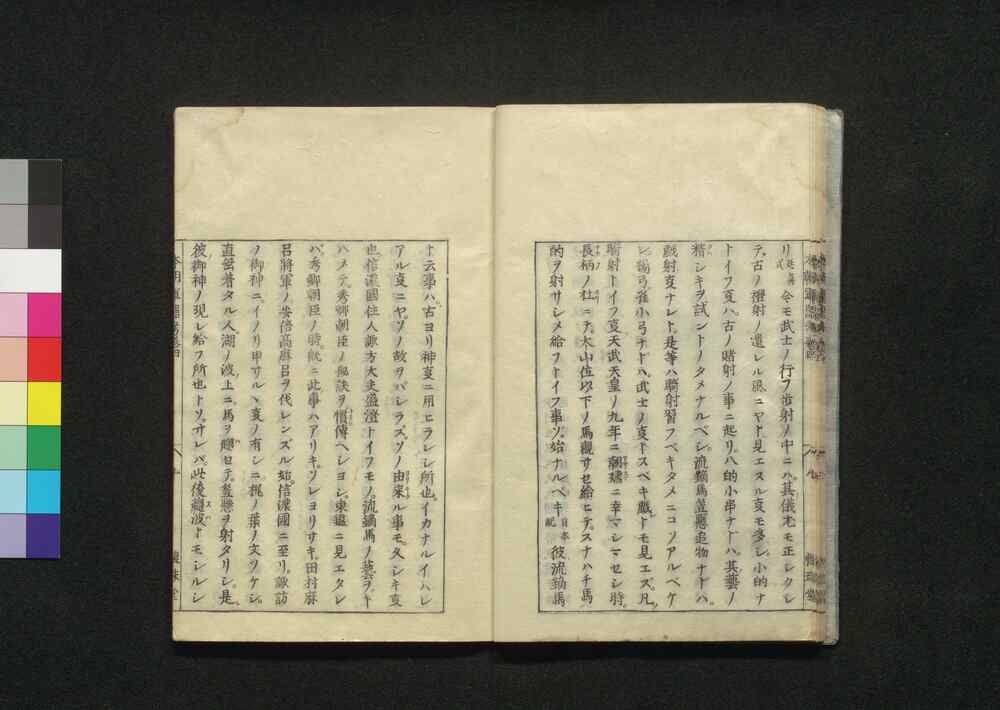 今モ武士ノ行フ歩射ノ中ニハ其儀尤モ正シクシ
テ古ノ禮射ノ遺レル風ニヤト見エスル事モ多シ小的ナ
トイフ事ハ古ノ賭射ノ事ニ起リ八的小串ナトハ其藝ノ
精シキヲ試ントノタメナルベシ流鏑馬笠懸追物ナトハ
戯射事ナレト是等ハ騎射習フベキタメニコソアルベケ
レ鴿弓雀小弓ナトハ武士ノ事トスベキ戯トモ見エズ凡
騎射トイフ事天武天皇ノ九年ニ朝嬬ニ幸マシマセシ時
長柄ノ杜ニテ大山位以下ノ馬觀サセ給ヒテスナハチ馬
的ヲ射サシメ給フトイフ事ソ始ナルベキ日本紀彼流鏑馬
ト云事ハ古ヨリ神事ニ用ヒラレシ所也イカナルイハレ
アル事ニヤソノ故ヲバシラズソノ由來ル事モ久シキ事
也信濃國住人諏方大夫盛澄トイフモノ流鏑馬ノ藝ヲキ
ハメテ秀郷朝臣ノ秘訣ヲ慣傳ヘシヨシ東鑑ニ見エタレ
バ秀郷朝臣ノ時既ニ此事ハアリキソレヨリサキ田村麻
呂將軍ノ安倍高麿呂ヲ伐レンズル始信濃國ニ至リ諏訪
ノ御神ニイノリ申サルヽ事ノ有シニ梶ノ葉ノ文ツケシ
直垂着タル人湖ノ波上ニ馬ヲ馳セテ笠懸ヲ射タリシ是
彼御神ノ現レ給フ所也トソサレバ此後